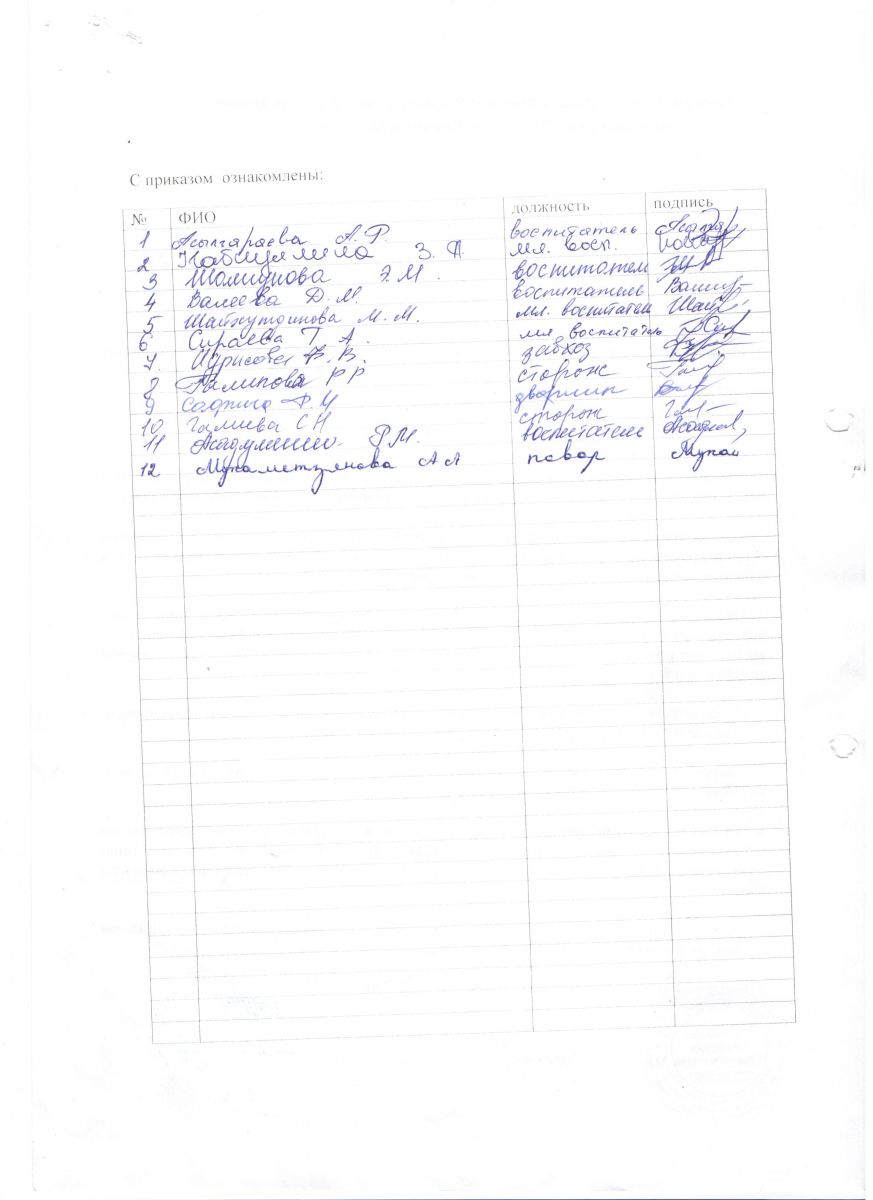 С приказом ознакомлены:
№ ФИО должность подпись
1 Асылгараева А.Р. воспитатель
2 Набиуллина З. мл. восп.
3 Шамидкова Э.М. воспитатель
4 Валеева Д.М. воспитатель
5 Шайхутдинова М.М. мл. воспитатель Шайх
6 Сираева Г.А. мл воспитатель
7. Идрисова Ф.В. завхоз
8 Галимова Р Р сторож
9 дворник
10 Галиева С Н сторож
11 Р.М. воспитатель
12 Мухаметзянова А А повар